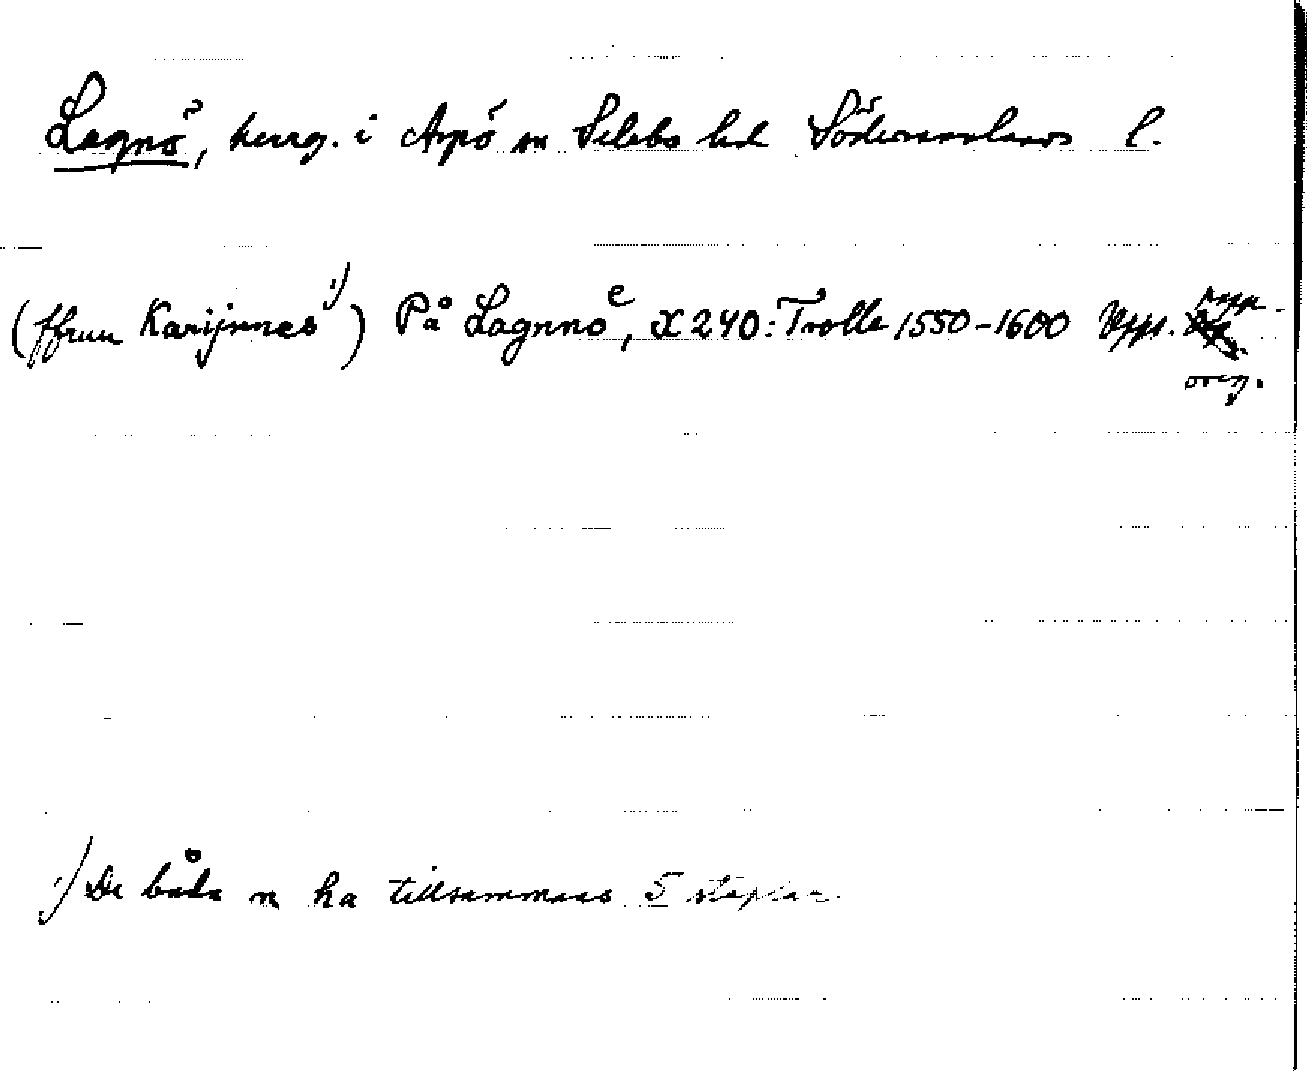 Lagnö, herrg. i Aspö sn Selebo hd Södermanlands l.
(ffrun Karijnnes 1)) På Lagnnoͤ, X 240: Trolle 1550-1600 Upps.
1) De båda n ha tillsammans 5 staplar.